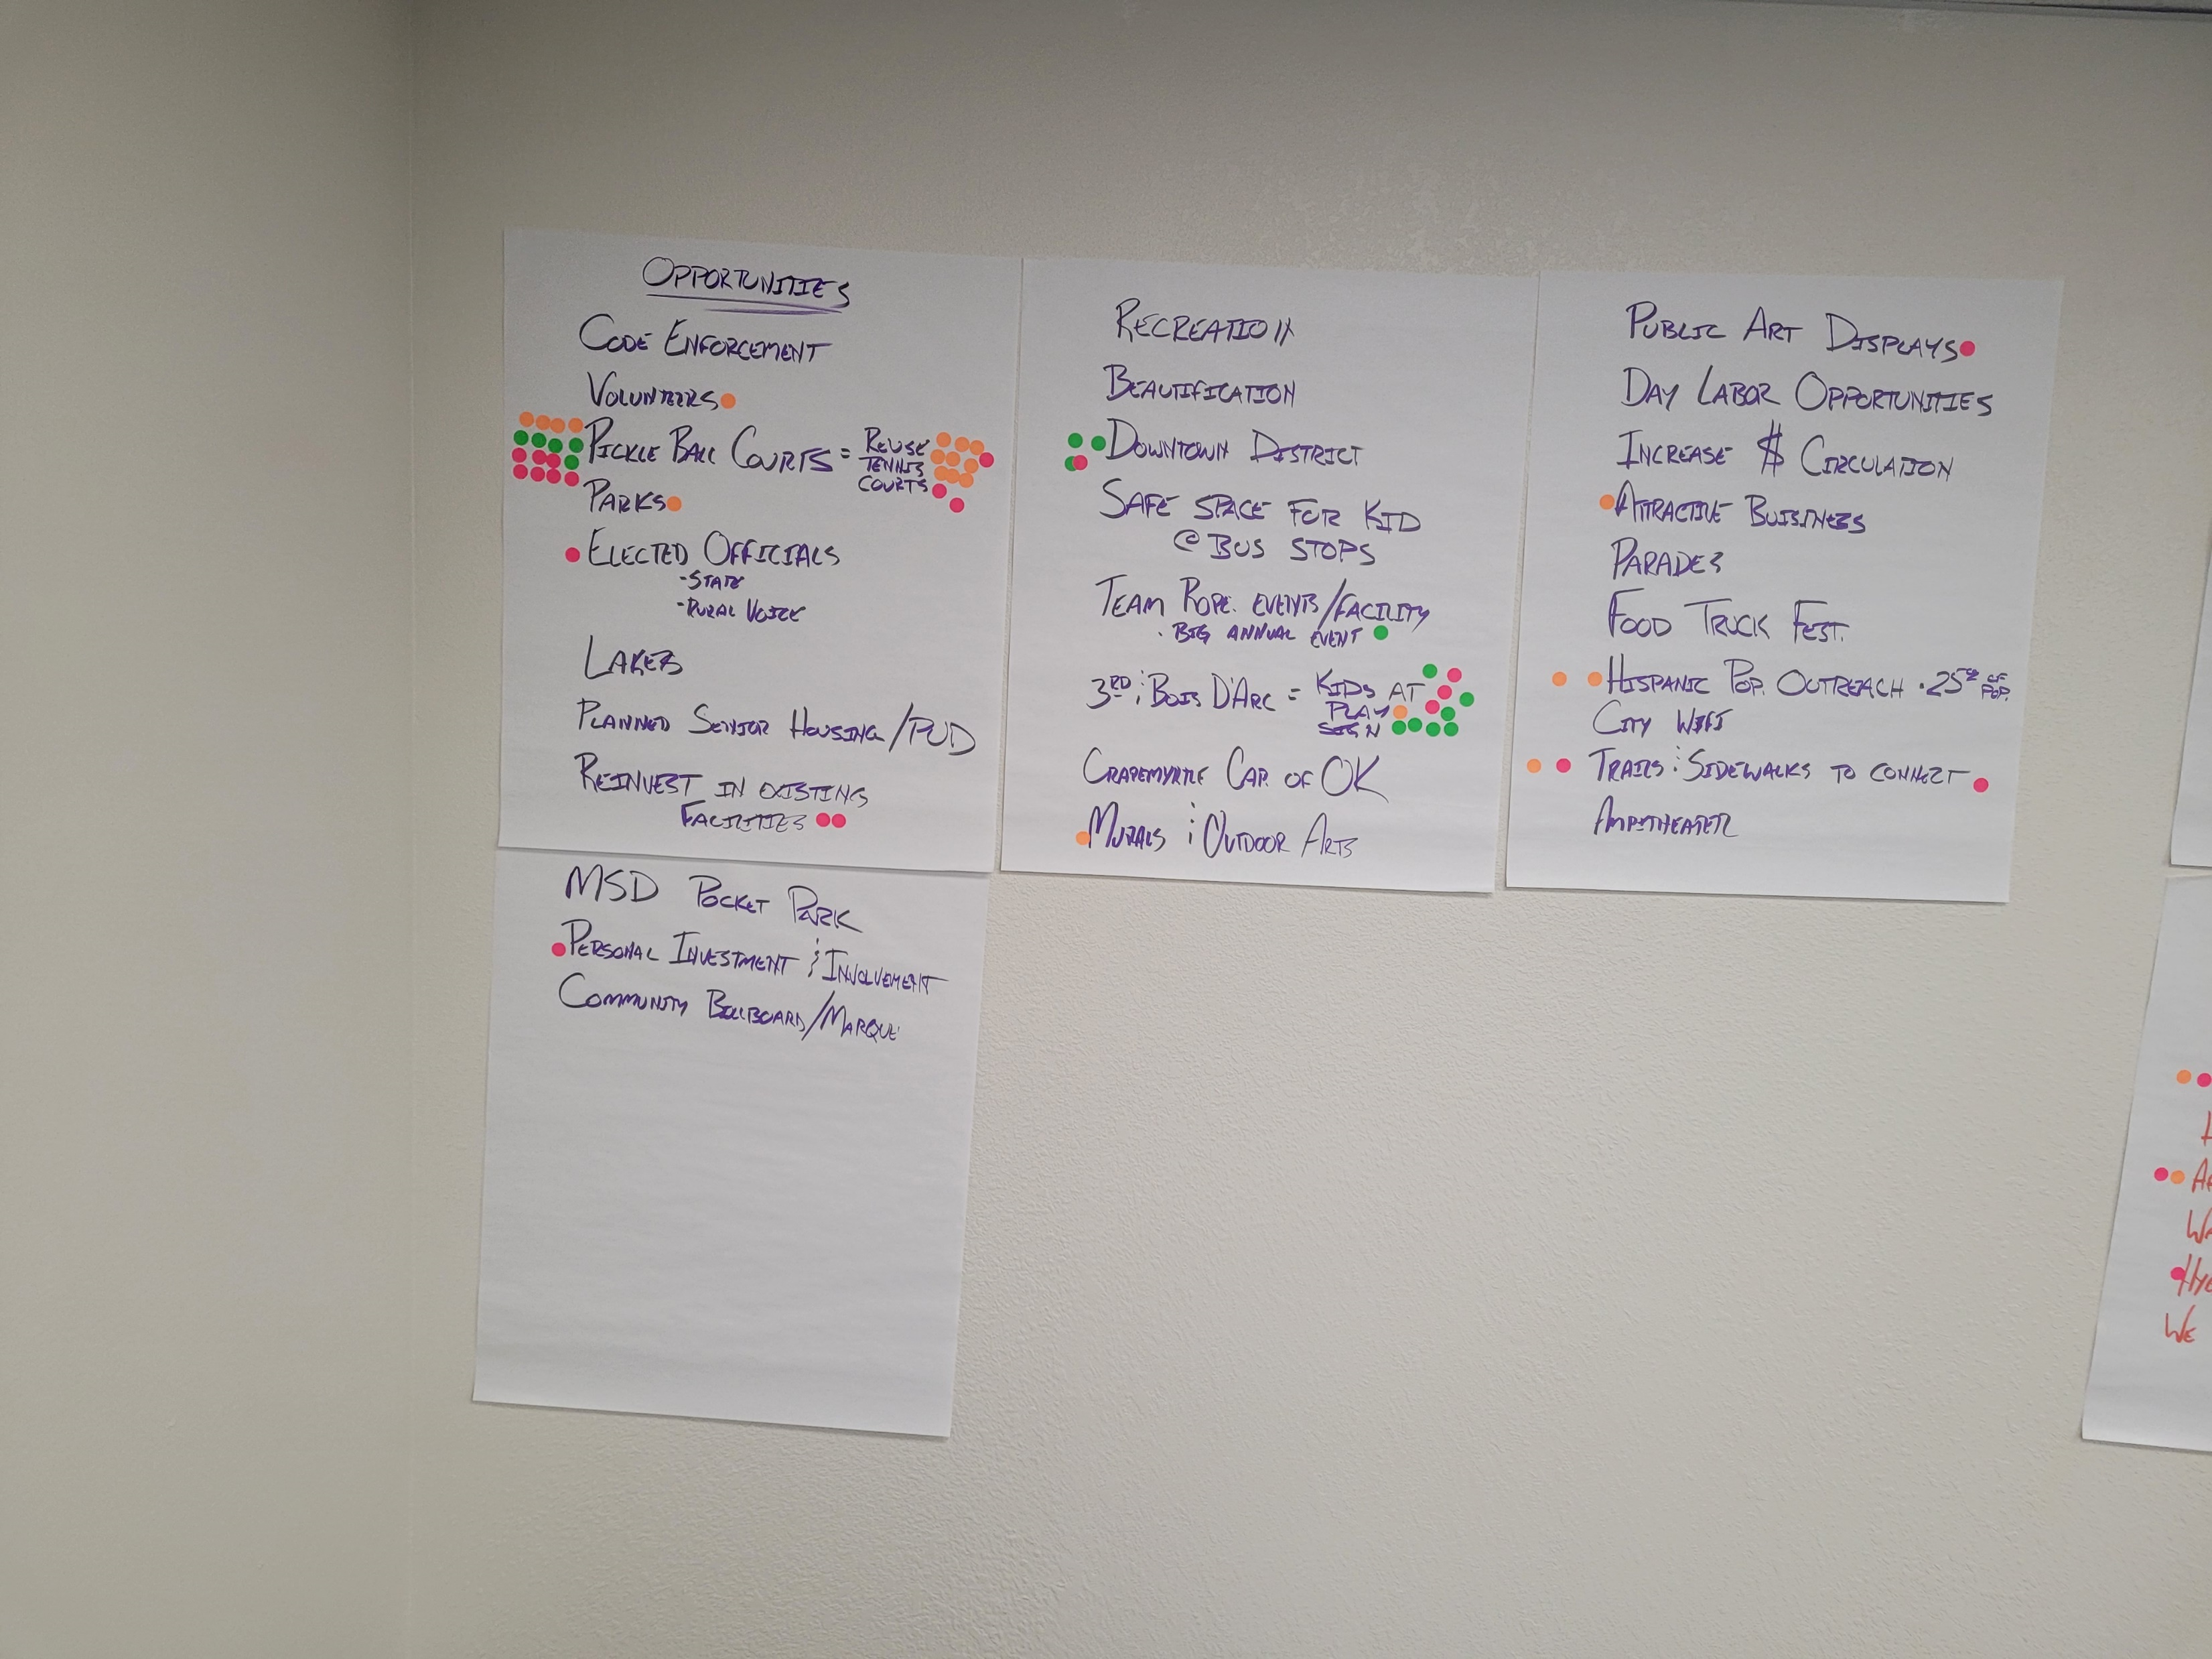 OPPORTUNITIES
CODE ENFORCEMENT
VOLUNTEERS
PICKLE BALL COURTS = REUSE
TENNIS
COURTS
PARKS
ELECTED OFFICIALS
-STATE
-RURAL VOICE
LAKES
PLANNED SENIOR HOUSING/PUD
REINVEST IN EXISTING
FACILITIES
MSD POCKET PARK
PERSONAL INVESTMENT & INVOLVEMENT
COMMUNITY BILLBOARD/MARQUE
RECREATION
BEAUTIFICATION
DOWNTOWN DISTRICT
SAFE SPACE FOR KID
@ BUS STOPS
TEAM ROPE. EVENTS/FACILITY
· BIG ANNUAL EVENT
3RD & BOIS D'ARC = KIDS AT
PLAY
SIGN
CRAPEMYRTLE CAP. OF OK
MURALS & OUTDOOR ARTS
PUBLIC ART DISPLAYS
DAY LABOR OPPORTUNITIES
INCREASE $ CIRCULATION
ATTRACTIVE BUISINESS
PARADES
FOOD TRUCK FEST.
HISPANIC POP. OUTREACH · 25% OF POP.
CITY WIFI
TRAILS & SIDEWALKS TO CONNECT
AMPITHEATER
WE